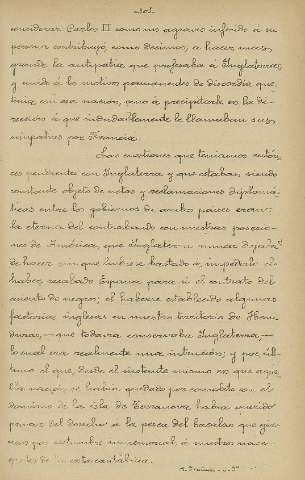 considerar Carlos III como un agravio inferido á su
persona contribuyó, como decimos, a hacer mas
grande la antipatia que profesaba á Inglaterra,
y unido á los motivos permanentes de discordia que
tenia con esa nacion, vino a precipitarle en la di-
reccion á que indudablemente le llamaban sus
simpatias por Francia.
Las cuestiones que teniamos enton-
ces pendientes con Inglaterra y que estaban siendo
constante objeto de notas y reclamaciones diplomá-
ticas entre los gobiernos de ambos paises eran:
la eterna del contrabando con nuestras posesio-
nes de América, que Inglaterra nunca dejaba
de hacer sin que hubiese bastado á impedirlo el
haber recabado España para si el contrato del
asiento de negros; el haberse establecido algunas
factorias inglesas en nuestro territorio de Hon-
duras, que todavia conservaba Inglaterra,
lo cual era realmente una intrusion; y por úl-
timo el que, desde el instante mismo en que aque-
lla nacion se habia quedado por completo con el
dominio de la isla de Terranova, habia querido
privar del derecho a la pesca del bacalao que
por costumbre inmemorial á nuestros
de la costa cantábrica.